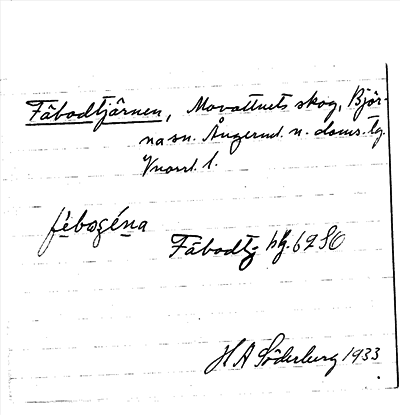 Fäbodtjärnen, Movattnets skog, Björ-
na sn. Ångerml. n. doms. tg.
Vnorrl. l.
fèbogéna
Fäbodtj. bfg. 6280
H A Söderberg 1933